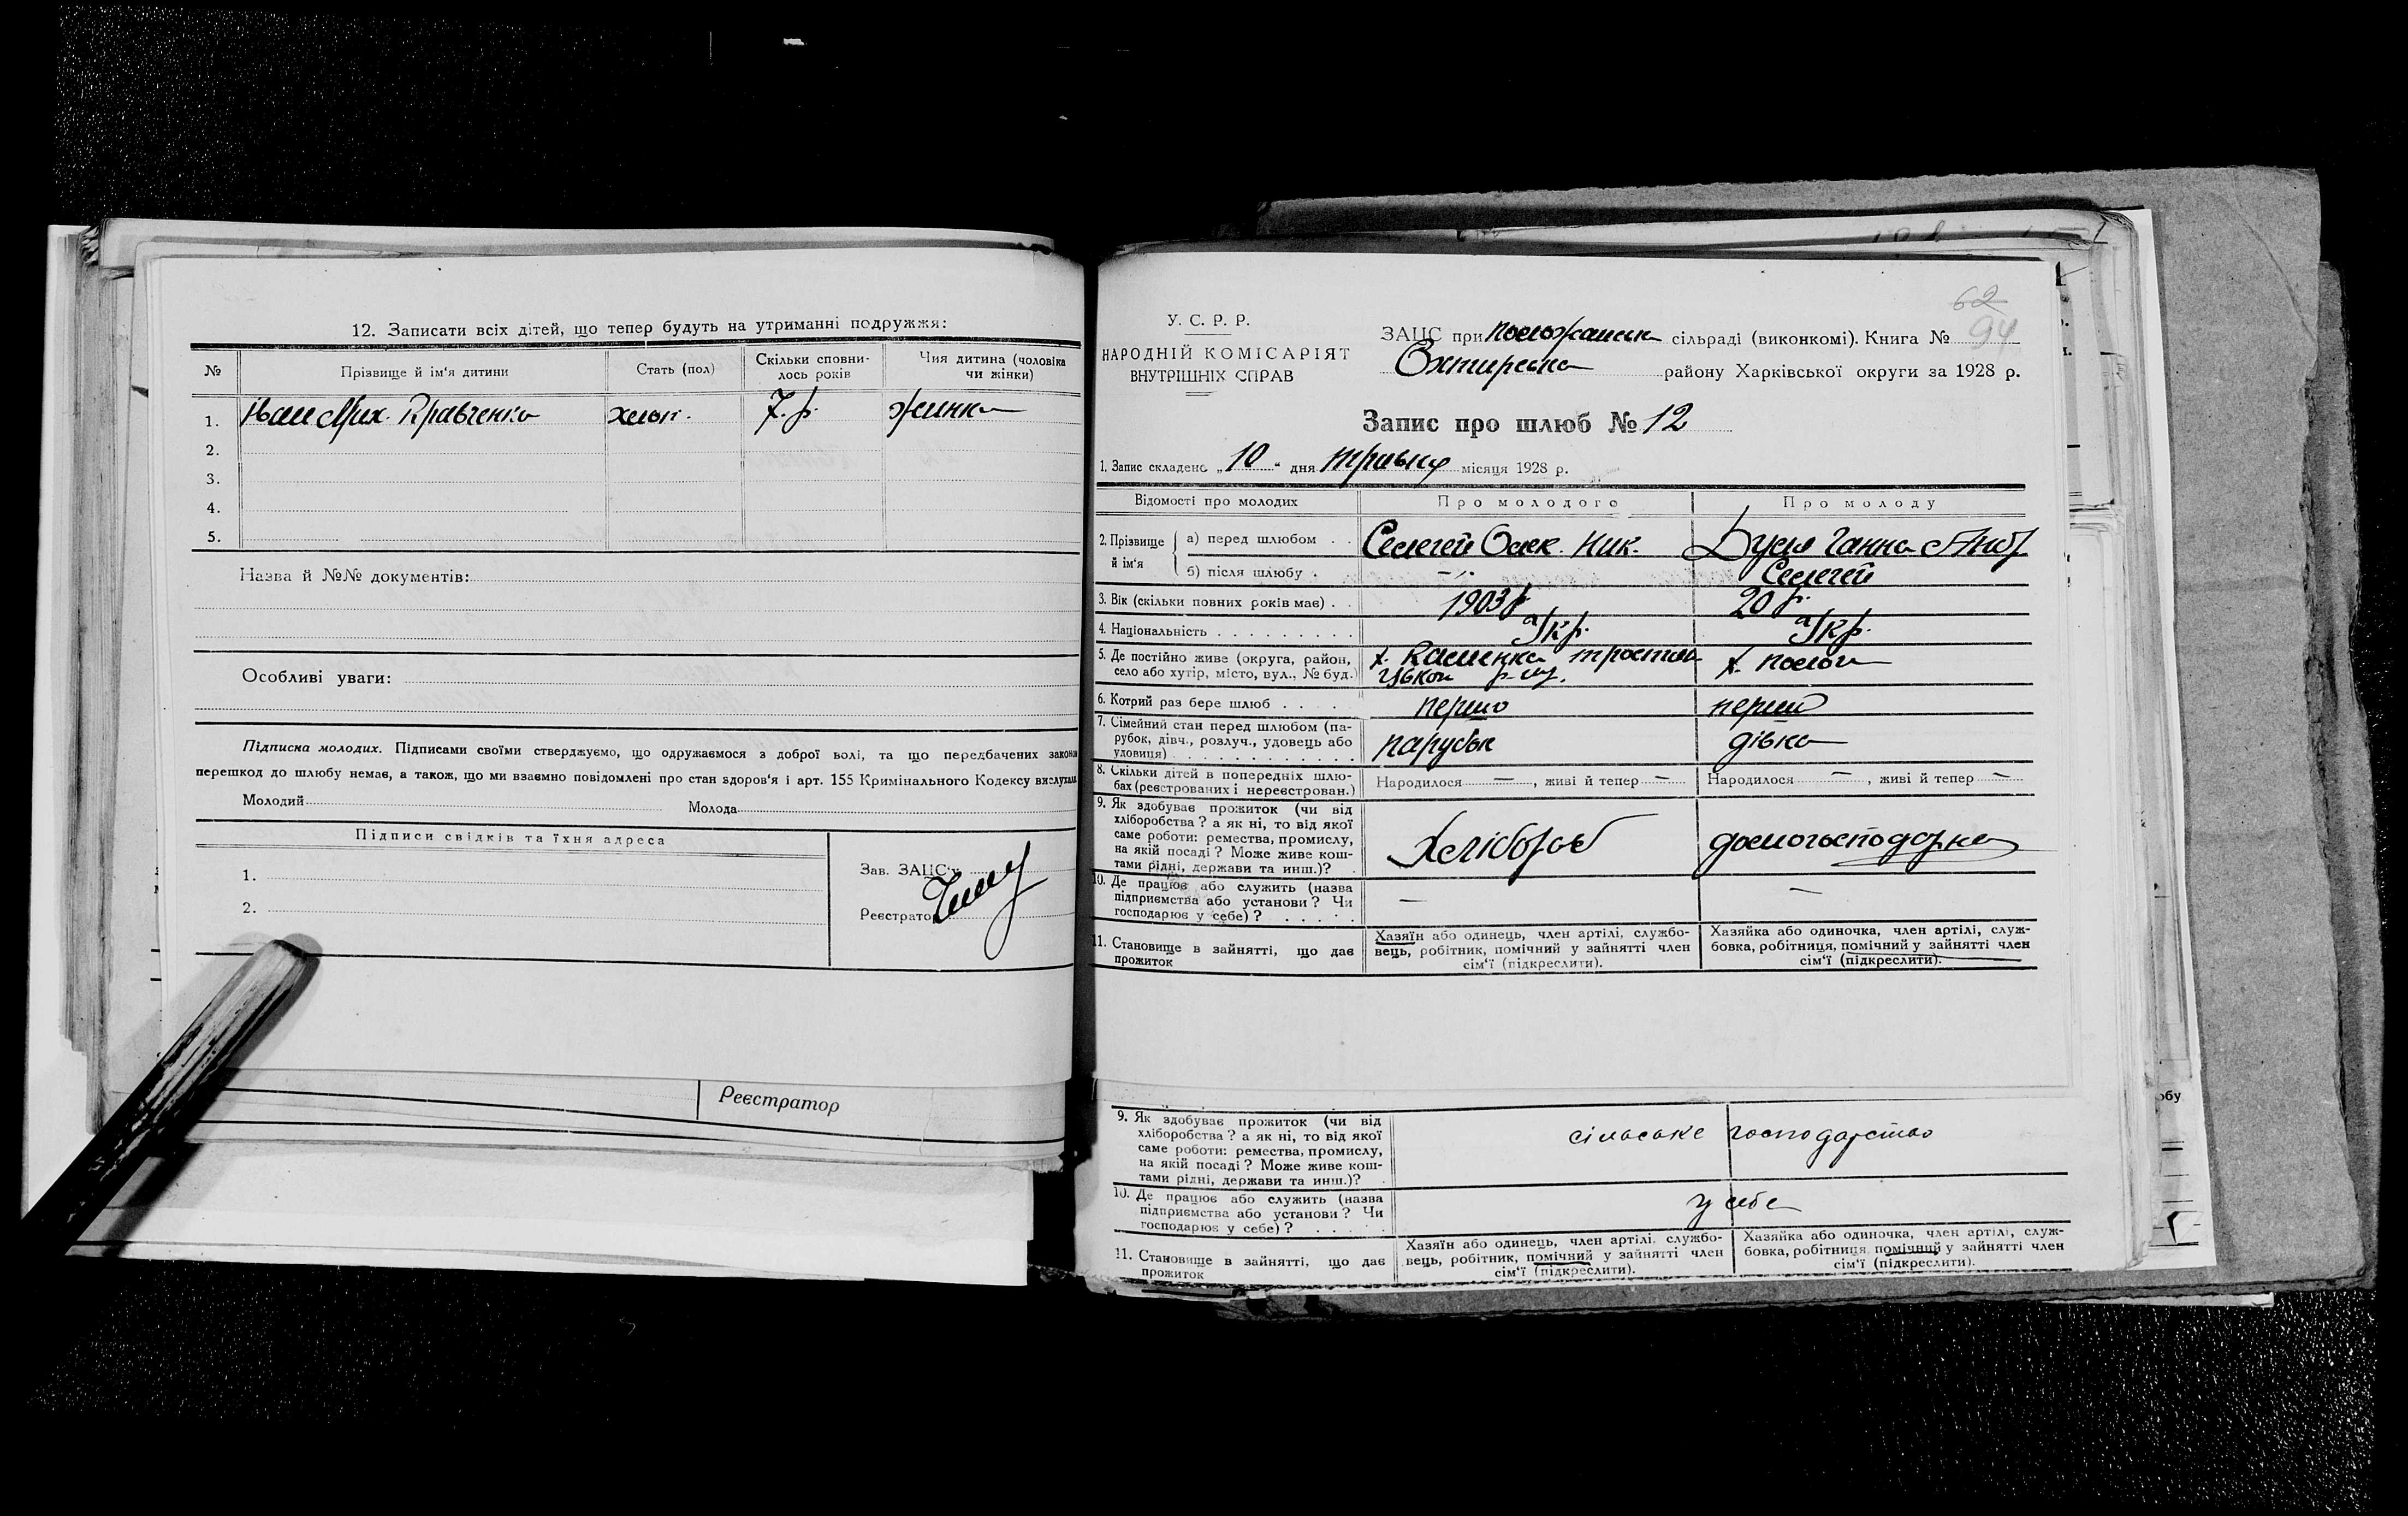 12. Записати всіх дітей, що тепер будуть на утриманні подружжя:
№ Прізвище й ім'я дитини Стать (пол) Скільки сповнилось років Чия дитина (чоловіка чи жінки)
1. Іван Мих. Кравченко хлоп. 7. р. жинки
2.
3.
4.
5.
Назва й №№ документів:
Особливі уваги:
Підписка молодих. Підписами своїми стверджуємо, що одружаємося з доброї волі, та що передбачених законом
перешкод до шлюбу немає, а також, що ми взаємно повідомлені про стан здоров'я і арт. 155 Кримінального Кодексу вислухали
Молодий Молода
Підписи свідків та їхня адреса
1.
2.
Зав. ЗАЦС'у
Реєстратор
Реєстратор
62
94
У. С. Р. Р.
НАРОДНІЙ КОМІСАРІЯТ
ВНУТРІШНІХ СПРАВ
ЗАЦС при сільраді (виконкомі). Книга №
Охтирська району Харківської округи за 1928 р.
Запис про шлюб № 12
1. Запис складено „10“ дня травня місяця 1928 р.
Відомості про молодих Про молодого Про молоду
2. Прізвище й ім'я
а) перед шлюбом . . Селегей Олек. Ник. Ганна
б) після шлюбу . -"- Селегей
3. Вік (скільки повних років має) . . 1903 р. 20 р.
4. Національність . . . . . . . . . Укр. Укр.
5. Де постійно живе (округа, район, х. Каменка тростян
село або хутір, місто, вул., № буд.) р-ну. х.
6. Котрий раз бере шлюб . . . . перший перший
7. Сімейний стан перед шлюбом (па-
рубок, дівч., розлуч., удовець або парубок дівка
удовиця) . . . . . . . . . . . .
8. Скільки дітей в попередніх шлю-
бах (реєстрованих і нереєстрован.) Народилося — , живі й тепер — Народилося — , живі й тепер —
9. Як здобуває прожиток (чи від
хліборобства? а як ні, то від якої
саме роботи: ремества, промислу, Хлібороб домогосподарка
на якій посаді? Може живе кош-
тами рідні, держави та инш.)?
10. Де працює або служить (назва
підприємства або установи? Чи — —
господарює у себе)? . . . . .
11. Становище в зайнятті, що дає прожиток
Хазяїн або одинець, член артілі, службо-
вець, робітник, помічний у зайнятті член
сім'ї (підкреслити).
Хазяйка або одиночка, член артілі, служ-
бовка, робітниця, помічний у зайнятті член
сім'ї (підкреслити).
9. Як здобуває прожиток (чи від
хліборобства? а як ні, то від якої
саме роботи: ремества, промислу, сільське господарство
на якій посаді? Може живе кош-
тами рідні, держави та инш.)?
10. Де працює або служить (назва
підприємства або установи? Чи у себе
господарює у себе)? . . . . .
11. Становище в зайнятті, що дає прожиток
Хазяїн або одинець, член артілі, службо-
вець, робітник, помічний у зайнятті член
сім'ї (підкреслити).
Хазяйка або одиночка, член артілі, служ-
бовка, робітниця, помічний у зайнятті член
сім'ї (підкреслити).